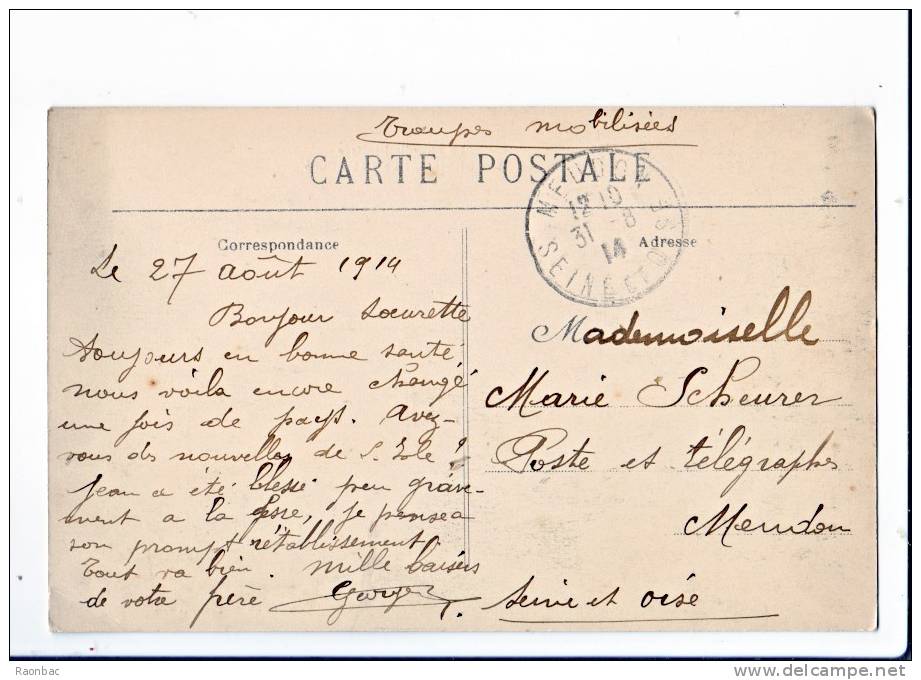 Troupes mobilisées
CARTE POSTALE
MEUDON
12 10
31 -8
14
SEINE ET OISE
Correspondance
Adresse
Le 27 août 1914
Bonjour soeurette
toujours en bonne santé
nous voila encore changé
une fois de pays. Avez-
vous des nouvelles de S. ?
Jean a été blessé peu grave-
ment a la fesse, je pense a
son prompt rétablissement
Tout va bien. Mille baisers
de votre père
Mademoiselle
Marie Scheurer
Poste et télégraphes
Meudon
Seine et oise
Raonbac
delcampe.net